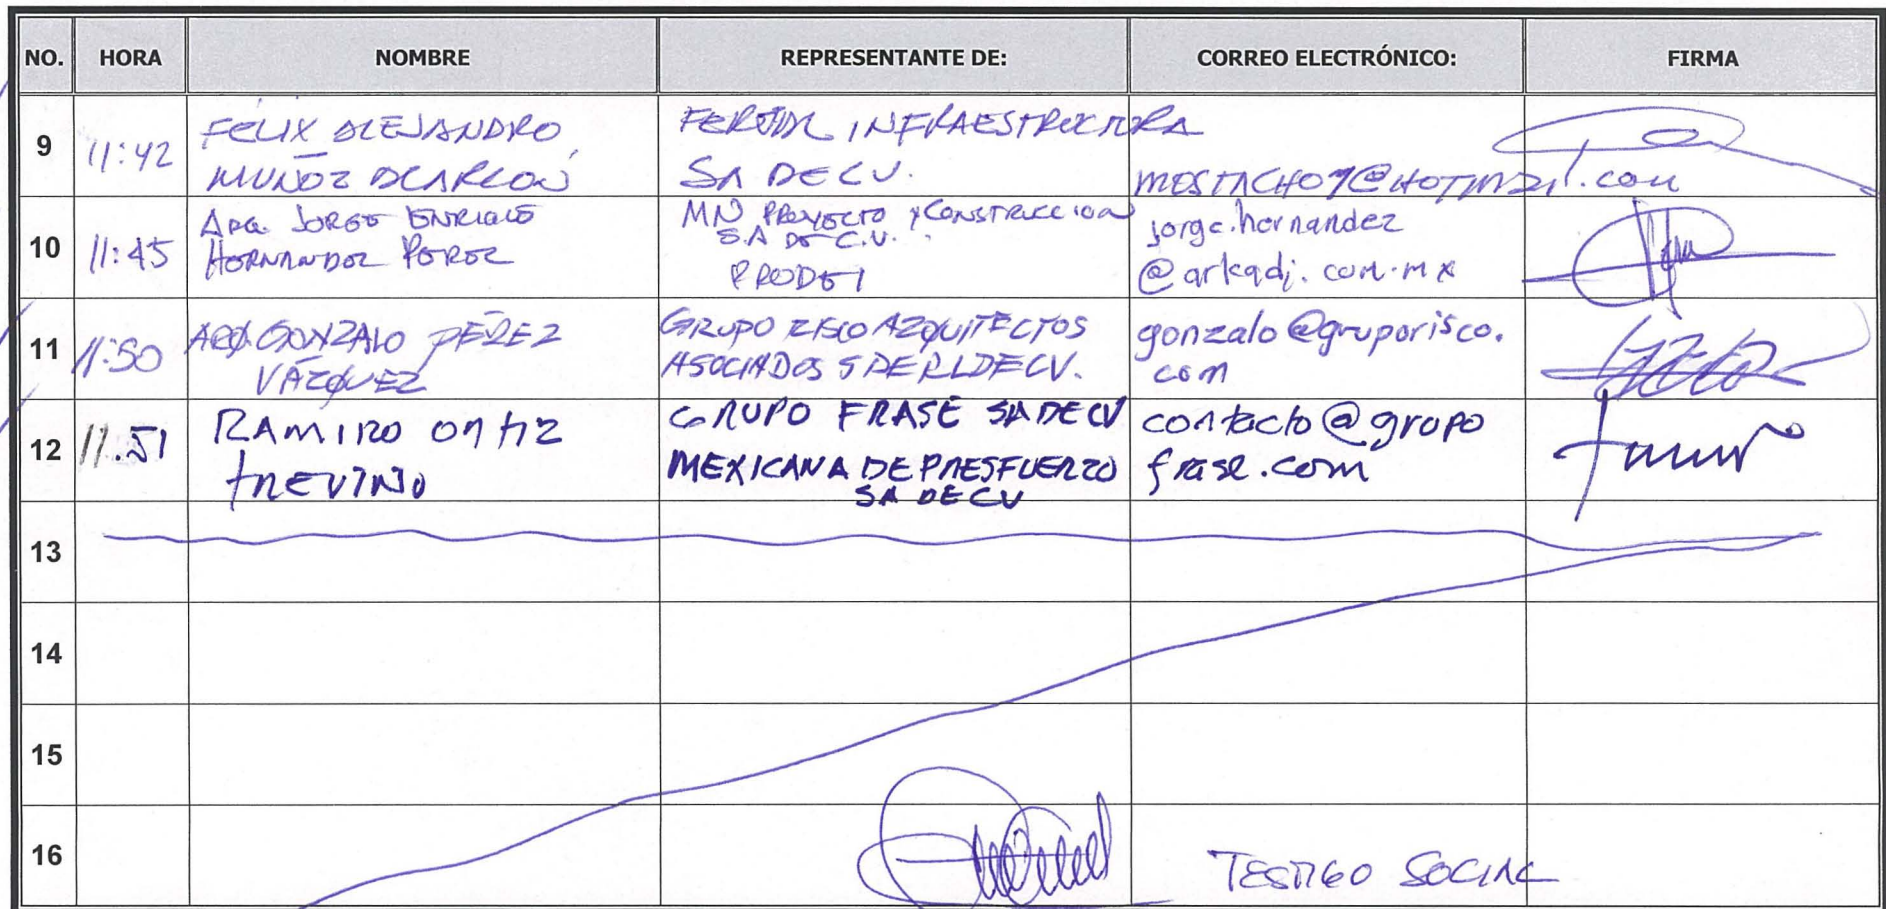 NO. HORA NOMBRE REPRESENTANTE DE: CORREO ELECTRÓNICO: FIRMA
9 11:42 FELIX ALEJANDRO MUÑOZ ALARCON
INFRAESTRUCTURA
SA DE CV.
10 11:45 ARQ. JORGE ENRIQUE
HERNANDEZ PEREZ
MN PROYECTO Y CONSTRUCCION
S.A DE C.V.
PRODEI
jorge.hernandez
@arkadi.com.mx
11 11:50 ARQ. GONZALO PÉREZ
VÁZQUEZ
GRUPO RISCO ARQUITECTOS
ASOCIADOS S DE RL DE CV.
gonzalo@gruporisco.
com
12 11.51 RAMIRO ORTIZ
TREVINO
GRUPO FRASE SA DE CV
MEXICANA DE PRESFUERZO
SA DE CV
contacto@grupo
frase.com
13
14
15
16 TESTIGO SOCIAL